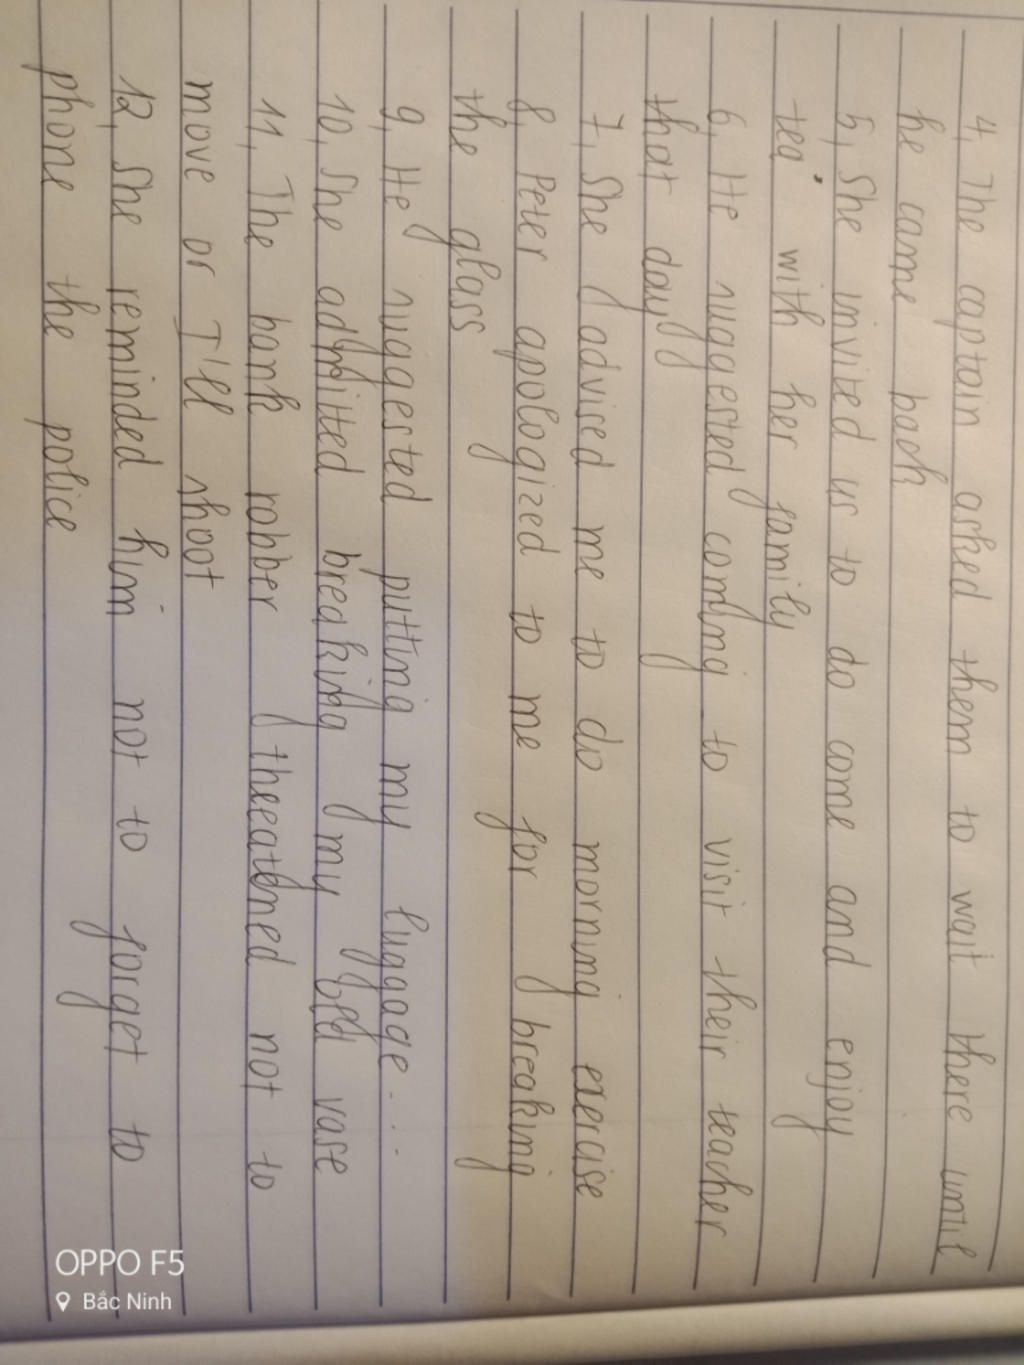 4, The captain asked them to wait there until
he came back
5, She invited us to do come and enjoy
tea with her family
6, He suggested coming to visit their teacher
that day
7, She advised me to do morning exercise
8, Peter apologized to me for breaking
the glass
9, He suggested putting my luggage...
10, She admitted breaking my old vase
11, The bank robber theeatened not to
move or I'll shoot
12, She reminded him not to forget to
phone the police
OPPO F5
Bắc Ninh